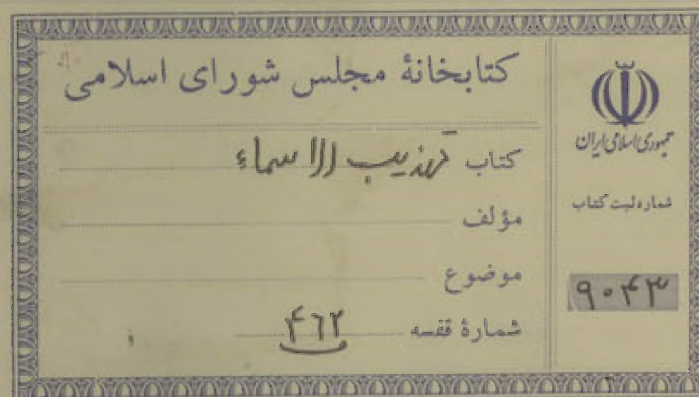 کتابخانهٔ مجلس شورای اسلامی
کتاب تهذیب الاسماء
مؤلف
موضوع
شمارهٔ قفسه ۴۶۲
جمهوری اسلامی ایران
شماره ثبت کتاب
۹۰۴۳